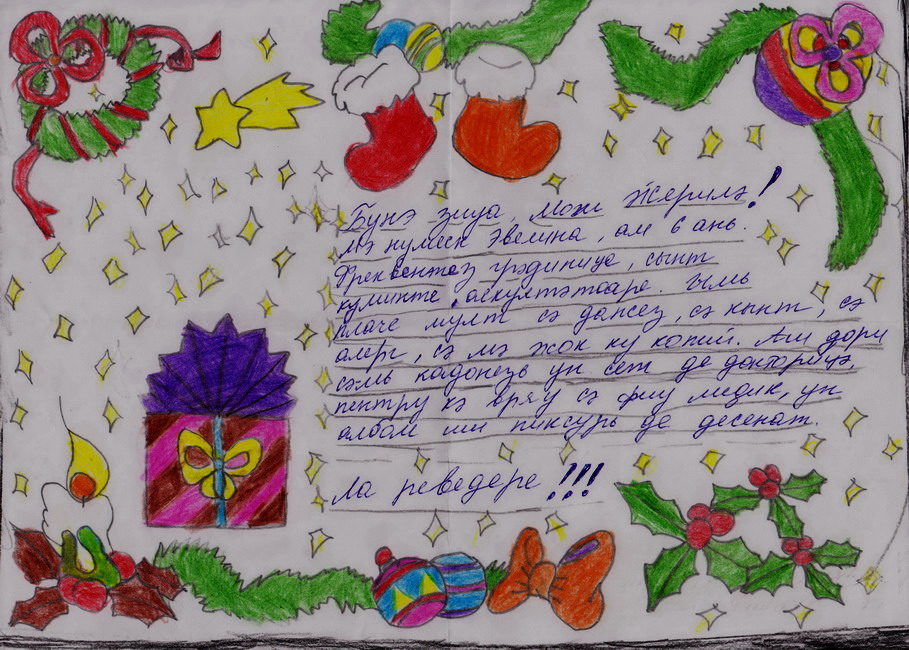 Бунэ зиуа, мош Жерилэ!
Мэ нумеск Эвелина, ам 6 ань.
Фреквентез грэдиница, сынт
куминте, аскултэтоаре. Ымь
плаче мулт сэ дансез, сэ кынт, сэ
алерг, сэ мэ жок ку копий. Аш дори
сэмь кадонезь ун сет де докторицэ,
пентру кэ вряу сэ фиу медик, ун
албом ши пиксурь де десенат.
Ла реведере!!!